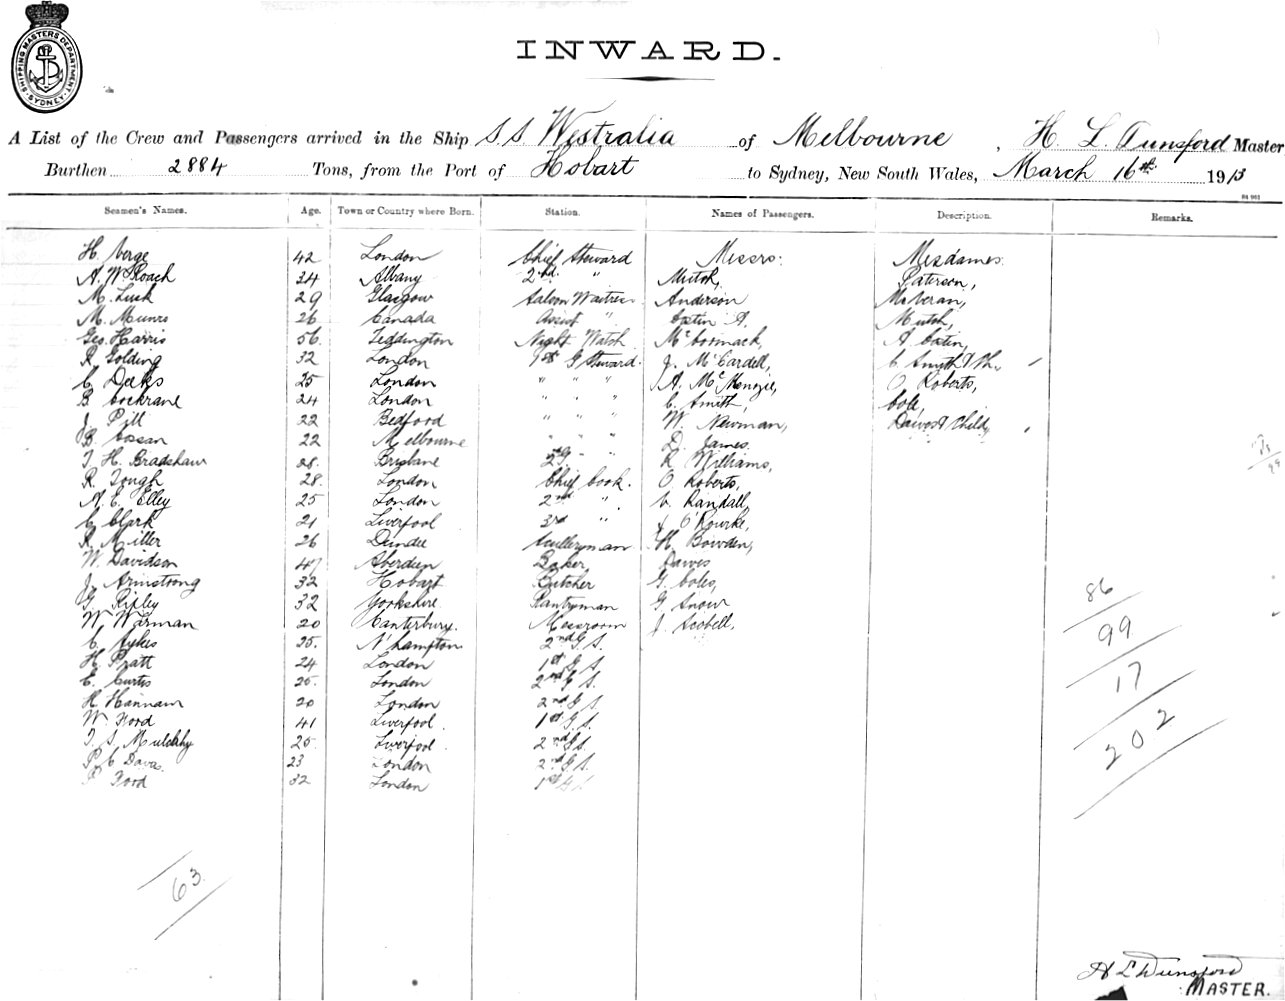 SHIPPING MASTERS DEPARTMENT
SYDNEY
INWARD.
A List of the Crew and Passengers arrived in the Ship S.S. Westralia of Melbourne, H. L. Dunsford Master
Burthen 2884 Tons, from the Port of Hobart to Sydney, New South Wales, March 16th 1913
Seamen's Names. Age. Town or Country where Born. Station. Names of Passengers. Description. Remarks.
H. Verge 42 London Chief Steward Messrs: Mesdames:
A. W. Roach 34 Albany 2nd " Mutch, Paterson,
M. Lusk 29 Glasgow Saloon Waitress Anderson
M. Munro 26 Canada Assist " A. Mutch,
Geo. Harris 56. Teddington Night Watch McCormack, A.
R. Golding 32 London 1st G Steward. J. McCardell, C. Smyth
C. Deeks 25 London " " " A. McKenzie, O Roberts,
B. Cockrane 24 London " " " C. Smith, Cole,
J. Pill 22 Bedford " " " W. Newman, Dawes & Child,
B. Cossan 22 Melbourne " " " D. James.
T. H. Bradshaw 28. Brisbane 2nd G " " R Williams,
R. Gough 28. London Chief Cook. O Roberts,
A. E. Elley 25 London 2nd " V. Randall,
C. Clark 21 Liverpool 3rd " J O'Rourke,
R. Miller 26 Dundee Sculleryman H. Bowden,
W. Davidson 47 Aberdeen Baker Dawes
J. Armstrong 32 Hobart Butcher G. Coles,
G. Ripley 32 Yorkshire Pantryman G. Snow
W. Warman 20 Canterbury. Messroom J. Scobell,
C. Sykes 25. N'hampton 2nd G.S.
H. Pratt 24 London 1st G S.
E. Curtis 25. London 2nd G S.
H. Hannam 20 London 2nd G S.
W. Ford 41 Liverpool. 1st G.S.
T. S. Mulcahy 25 Liverpool. 2nd G.S.
P. C 23 London 2nd G S.
Ford 32 London 1st G S
86
99
17
202
63
H L Dunsford
MASTER.